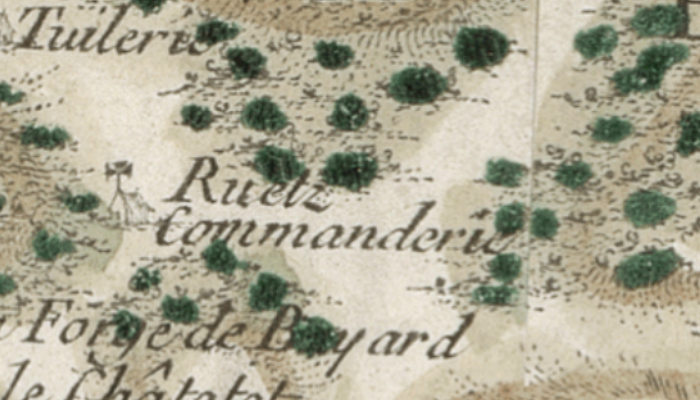 Tuilerie
Ruetz
Commanderie
Forge de Bayard
le Châtelet